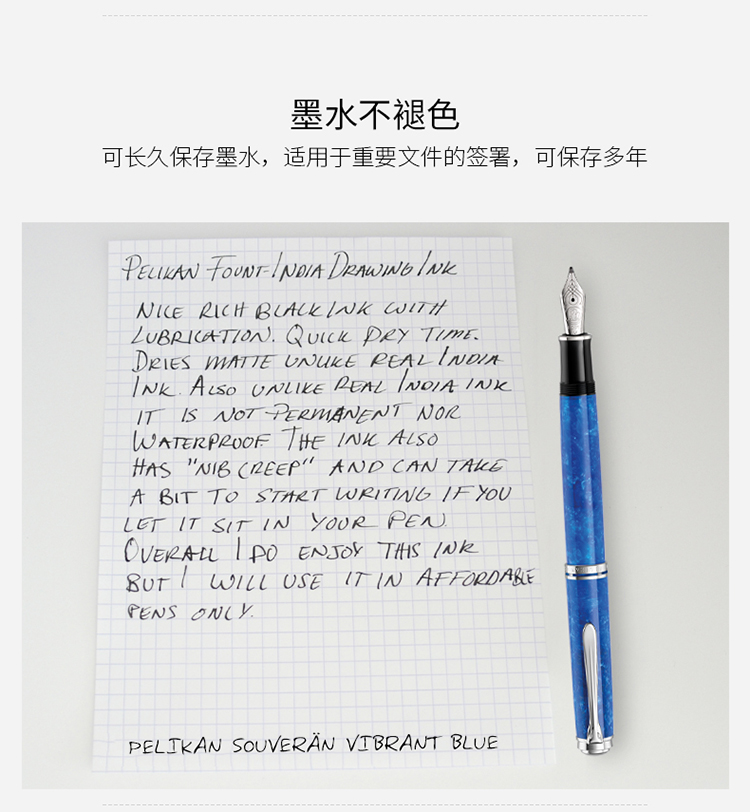 墨水不褪色
可长久保存墨水，适用于重要文件的签署，可保存多年
PELIKAN FOUNT-INDIA DRAWING INK
NICE RICH BLACK INK WITH
LUBRICATION. QUICK DRY TIME.
DRIES MATTE UNLIKE REAL INDIA
INK. ALSO UNLIKE REAL INDIA INK
IT IS NOT PERMANENT NOR
WATERPROOF. THE INK ALSO
HAS "NIB CREEP" AND CAN TAKE
A BIT TO START WRITING IF YOU
LET IT SIT IN YOUR PEN.
OVERALL I DO ENJOY THIS INK
BUT I WILL USE IT IN AFFORDABLE
PENS ONLY.
PELIKAN SOUVERÄN VIBRANT BLUE